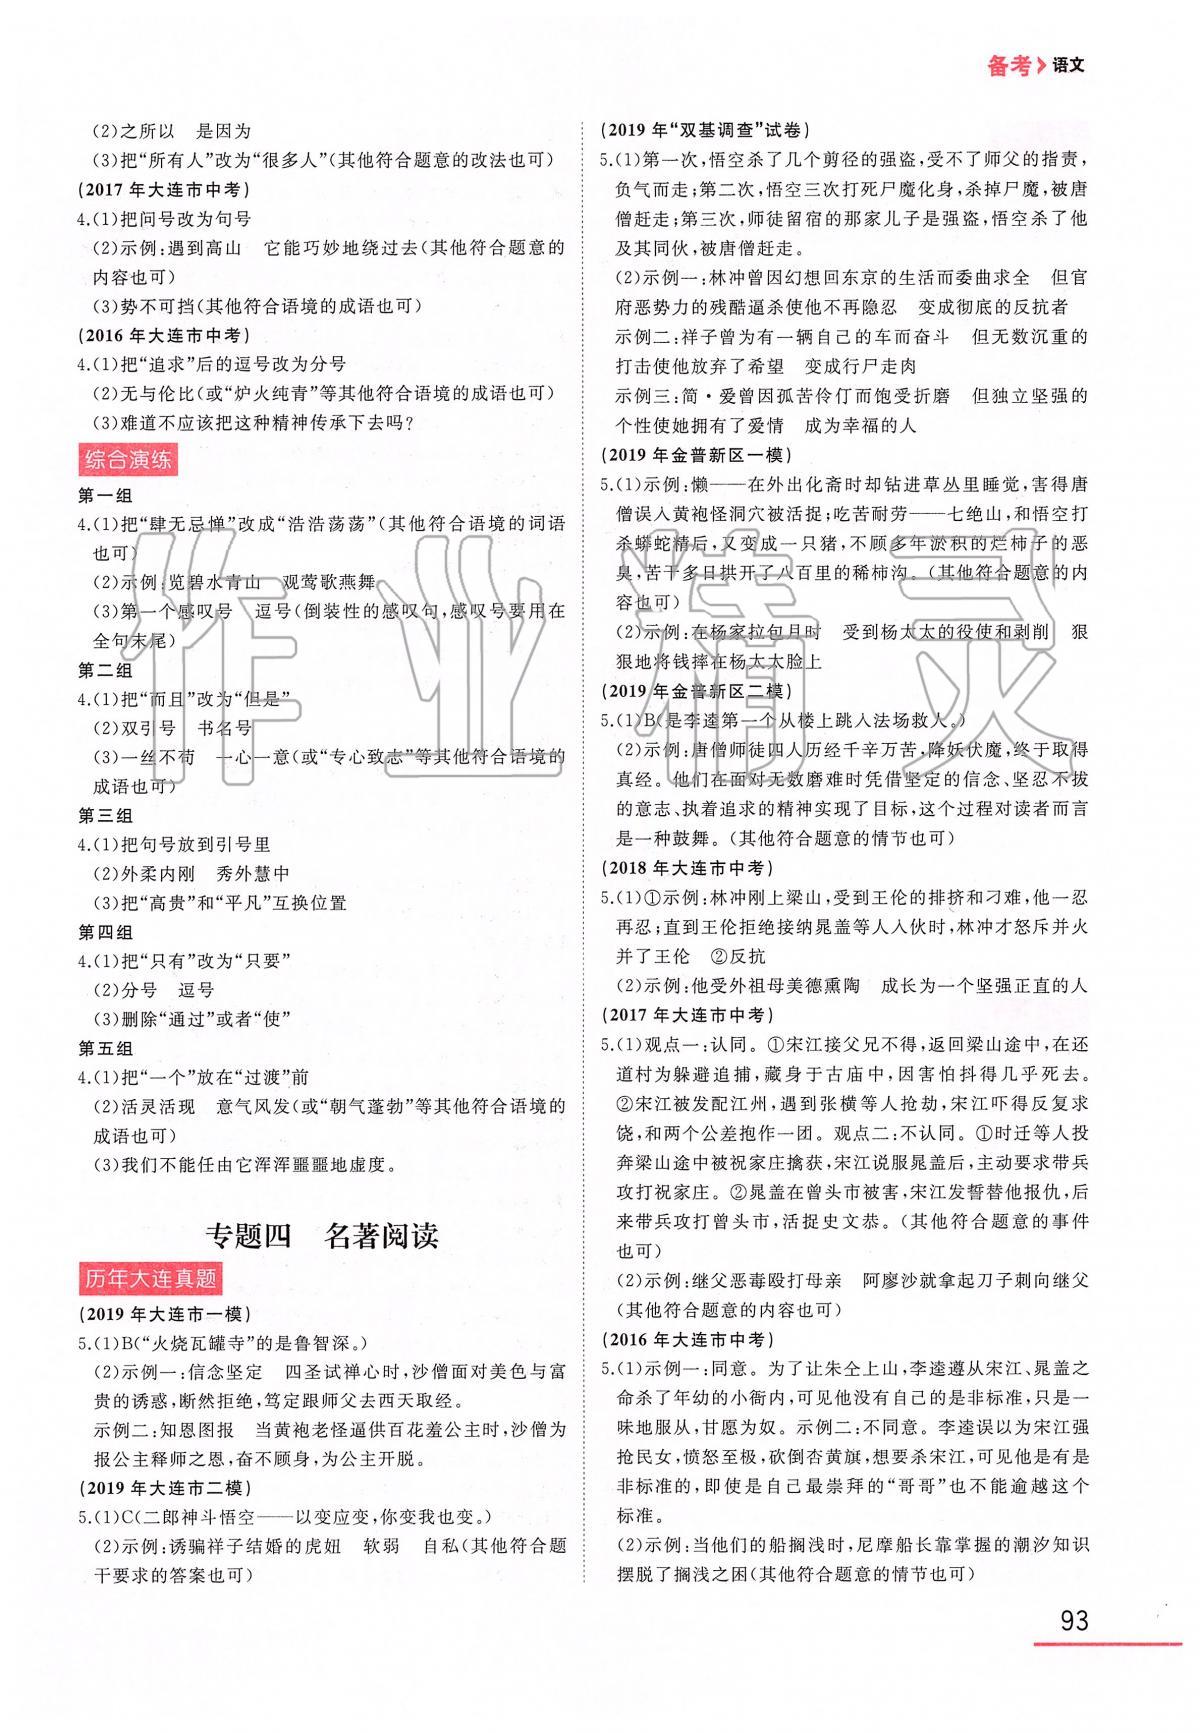 备考 语文
(2)之所以　是因为
(3)把“所有人”改为“很多人”(其他符合题意的改法也可)
(2017 年大连市中考)
4.(1)把问号改为句号
(2)示例:遇到高山　它能巧妙地绕过去(其他符合题意的
内容也可)
(3)势不可挡(其他符合语境的成语也可)
(2016 年大连市中考)
4.(1)把“追求”后的逗号改为分号
(2)无与伦比(或“炉火纯青”等其他符合语境的成语也可)
(3)难道不应该把这种精神传承下去吗?
综合演练
第一组
4.(1)把“肆无忌惮”改成“浩浩荡荡”(其他符合语境的词语
也可)
(2)示例:览碧水青山　观莺歌燕舞
(3)第一个感叹号　逗号(倒装性的感叹句,感叹号要用在
全句末尾)
第二组
4.(1)把“而且”改为“但是”
(2)双引号　书名号
(3)一丝不苟　一心一意(或“专心致志”等其他符合语境的
成语也可)
第三组
4.(1)把句号放到引号里
(2)外柔内刚　秀外慧中
(3)把“高贵”和“平凡”互换位置
第四组
4.(1)把“只有”改为“只要”
(2)分号　逗号
(3)删除“通过”或者“使”
第五组
4.(1)把“一个”放在“过渡”前
(2)活灵活现　意气风发(或“朝气蓬勃”等其他符合语境的
成语也可)
(3)我们不能任由它浑浑噩噩地虚度。
专题四　名著阅读
历年大连真题
(2019 年大连市一模)
5.(1)B(“火烧瓦罐寺”的是鲁智深。)
(2)示例一:信念坚定　四圣试禅心时,沙僧面对美色与富
贵的诱惑,断然拒绝,笃定跟师父去西天取经。
示例二:知恩图报　当黄袍老怪逼供百花羞公主时,沙僧为
报公主释师之恩,奋不顾身,为公主开脱。
(2019 年大连市二模)
5.(1)C(二郎神斗悟空——以变应变,你变我也变。)
(2)示例:诱骗祥子结婚的虎妞　软弱　自私(其他符合题
干要求的答案也可)
(2019 年“双基调查”试卷)
5.(1)第一次,悟空杀了几个剪径的强盗,受不了师父的指责,
负气而走;第二次,悟空三次打死尸魔化身,杀掉尸魔,被唐
僧赶走;第三次,师徒留宿的那家儿子是强盗,悟空杀了他
及其同伙,被唐僧赶走。
(2)示例一:林冲曾因幻想回东京的生活而委曲求全　但官
府恶势力的残酷逼杀使他不再隐忍　变成彻底的反抗者
示例二:祥子曾为有一辆自己的车而奋斗　但无数沉重的
打击使他放弃了希望　变成行尸走肉
示例三:简·爱曾因孤苦伶仃而饱受折磨　但独立坚强的
个性使她拥有了爱情　成为幸福的人
(2019 年金普新区一模)
5.(1)示例:懒——在外出化斋时却钻进草丛里睡觉,害得唐
僧误入黄袍怪洞穴被活捉;吃苦耐劳——七绝山,和悟空打
杀蟒蛇精后,又变成一只猪,不顾多年淤积的烂柿子的恶
臭,苦干多日拱开了八百里的稀柿沟。(其他符合题意的内
容也可)
(2)示例:在杨家拉包月时　受到杨太太的役使和剥削　狠
狠地将钱摔在杨太太脸上
(2019 年金普新区二模)
5.(1)B(是李逵第一个从楼上跳入法场救人。)
(2)示例:唐僧师徒四人历经千辛万苦,降妖伏魔,终于取得
真经。他们在面对无数磨难时凭借坚定的信念、坚忍不拔
的意志、执着追求的精神实现了目标,这个过程对读者而言
是一种鼓舞。(其他符合题意的情节也可)
(2018 年大连市中考)
5.(1)①示例:林冲刚上梁山,受到王伦的排挤和刁难,他一忍
再忍;直到王伦拒绝接纳晁盖等人入伙时,林冲才怒斥并火
并了王伦　②反抗
(2)示例:他受外祖母美德熏陶　成长为一个坚强正直的人
(2017 年大连市中考)
5.(1)观点一:认同。①宋江接父兄不得,返回梁山途中,在还
道村为躲避追捕,藏身于古庙中,因害怕抖得几乎死去。
②宋江被发配江州,遇到张横等人抢劫,宋江吓得反复求
饶,和两个公差抱作一团。观点二:不认同。①时迁等人投
奔梁山途中被祝家庄擒获,宋江说服晁盖后,主动要求带兵
攻打祝家庄。②晁盖在曾头市被害,宋江发誓替他报仇,后
来带兵攻打曾头市,活捉史文恭。(其他符合题意的事件
也可)
(2)示例:继父恶毒殴打母亲　阿廖沙就拿起刀子刺向继父
(其他符合题意的内容也可)
(2016 年大连市中考)
5.(1)示例一:同意。为了让朱仝上山,李逵遵从宋江、晁盖之
命杀了年幼的小衙内,可见他没有自己的是非标准,只是一
味地服从,甘愿为奴。示例二:不同意。李逵误以为宋江强
抢民女,愤怒至极,砍倒杏黄旗,想要杀宋江,可见他是有是
非标准的,即使是自己最崇拜的“哥哥”也不能逾越这个
标准。
(2)示例:当他们的船搁浅时,尼摩船长靠掌握的潮汐知识
摆脱了搁浅之困(其他符合题意的情节也可)
93
作业精灵